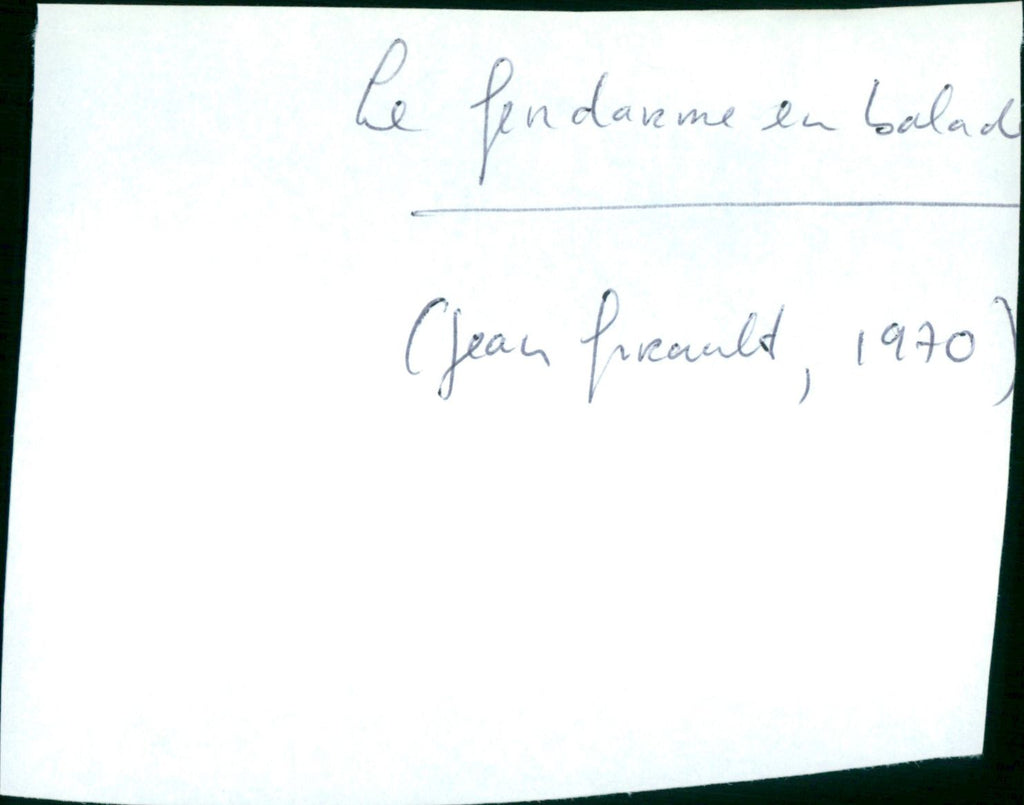 Le gendarme en balad
(Jean Girault, 1970)